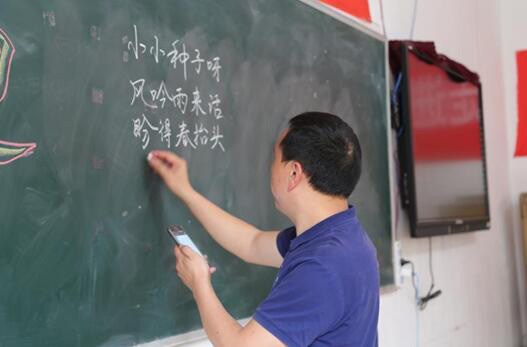 小小种子呀
风吟雨来活
盼得春抬头